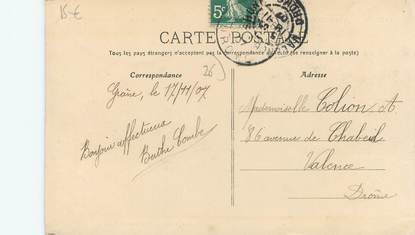 15 €
5c
CARTE POSTALE
Tous les pays étrangers n'acceptent pas la correspondance au recto (se renseigner à la poste)
26
Correspondance
Adresse
Grâne, le 17/11/07
Bonjour affectueux
Berthe Combe
Mademoiselle Colion A
86 avenue de Chabeuil
Valence
Drôme